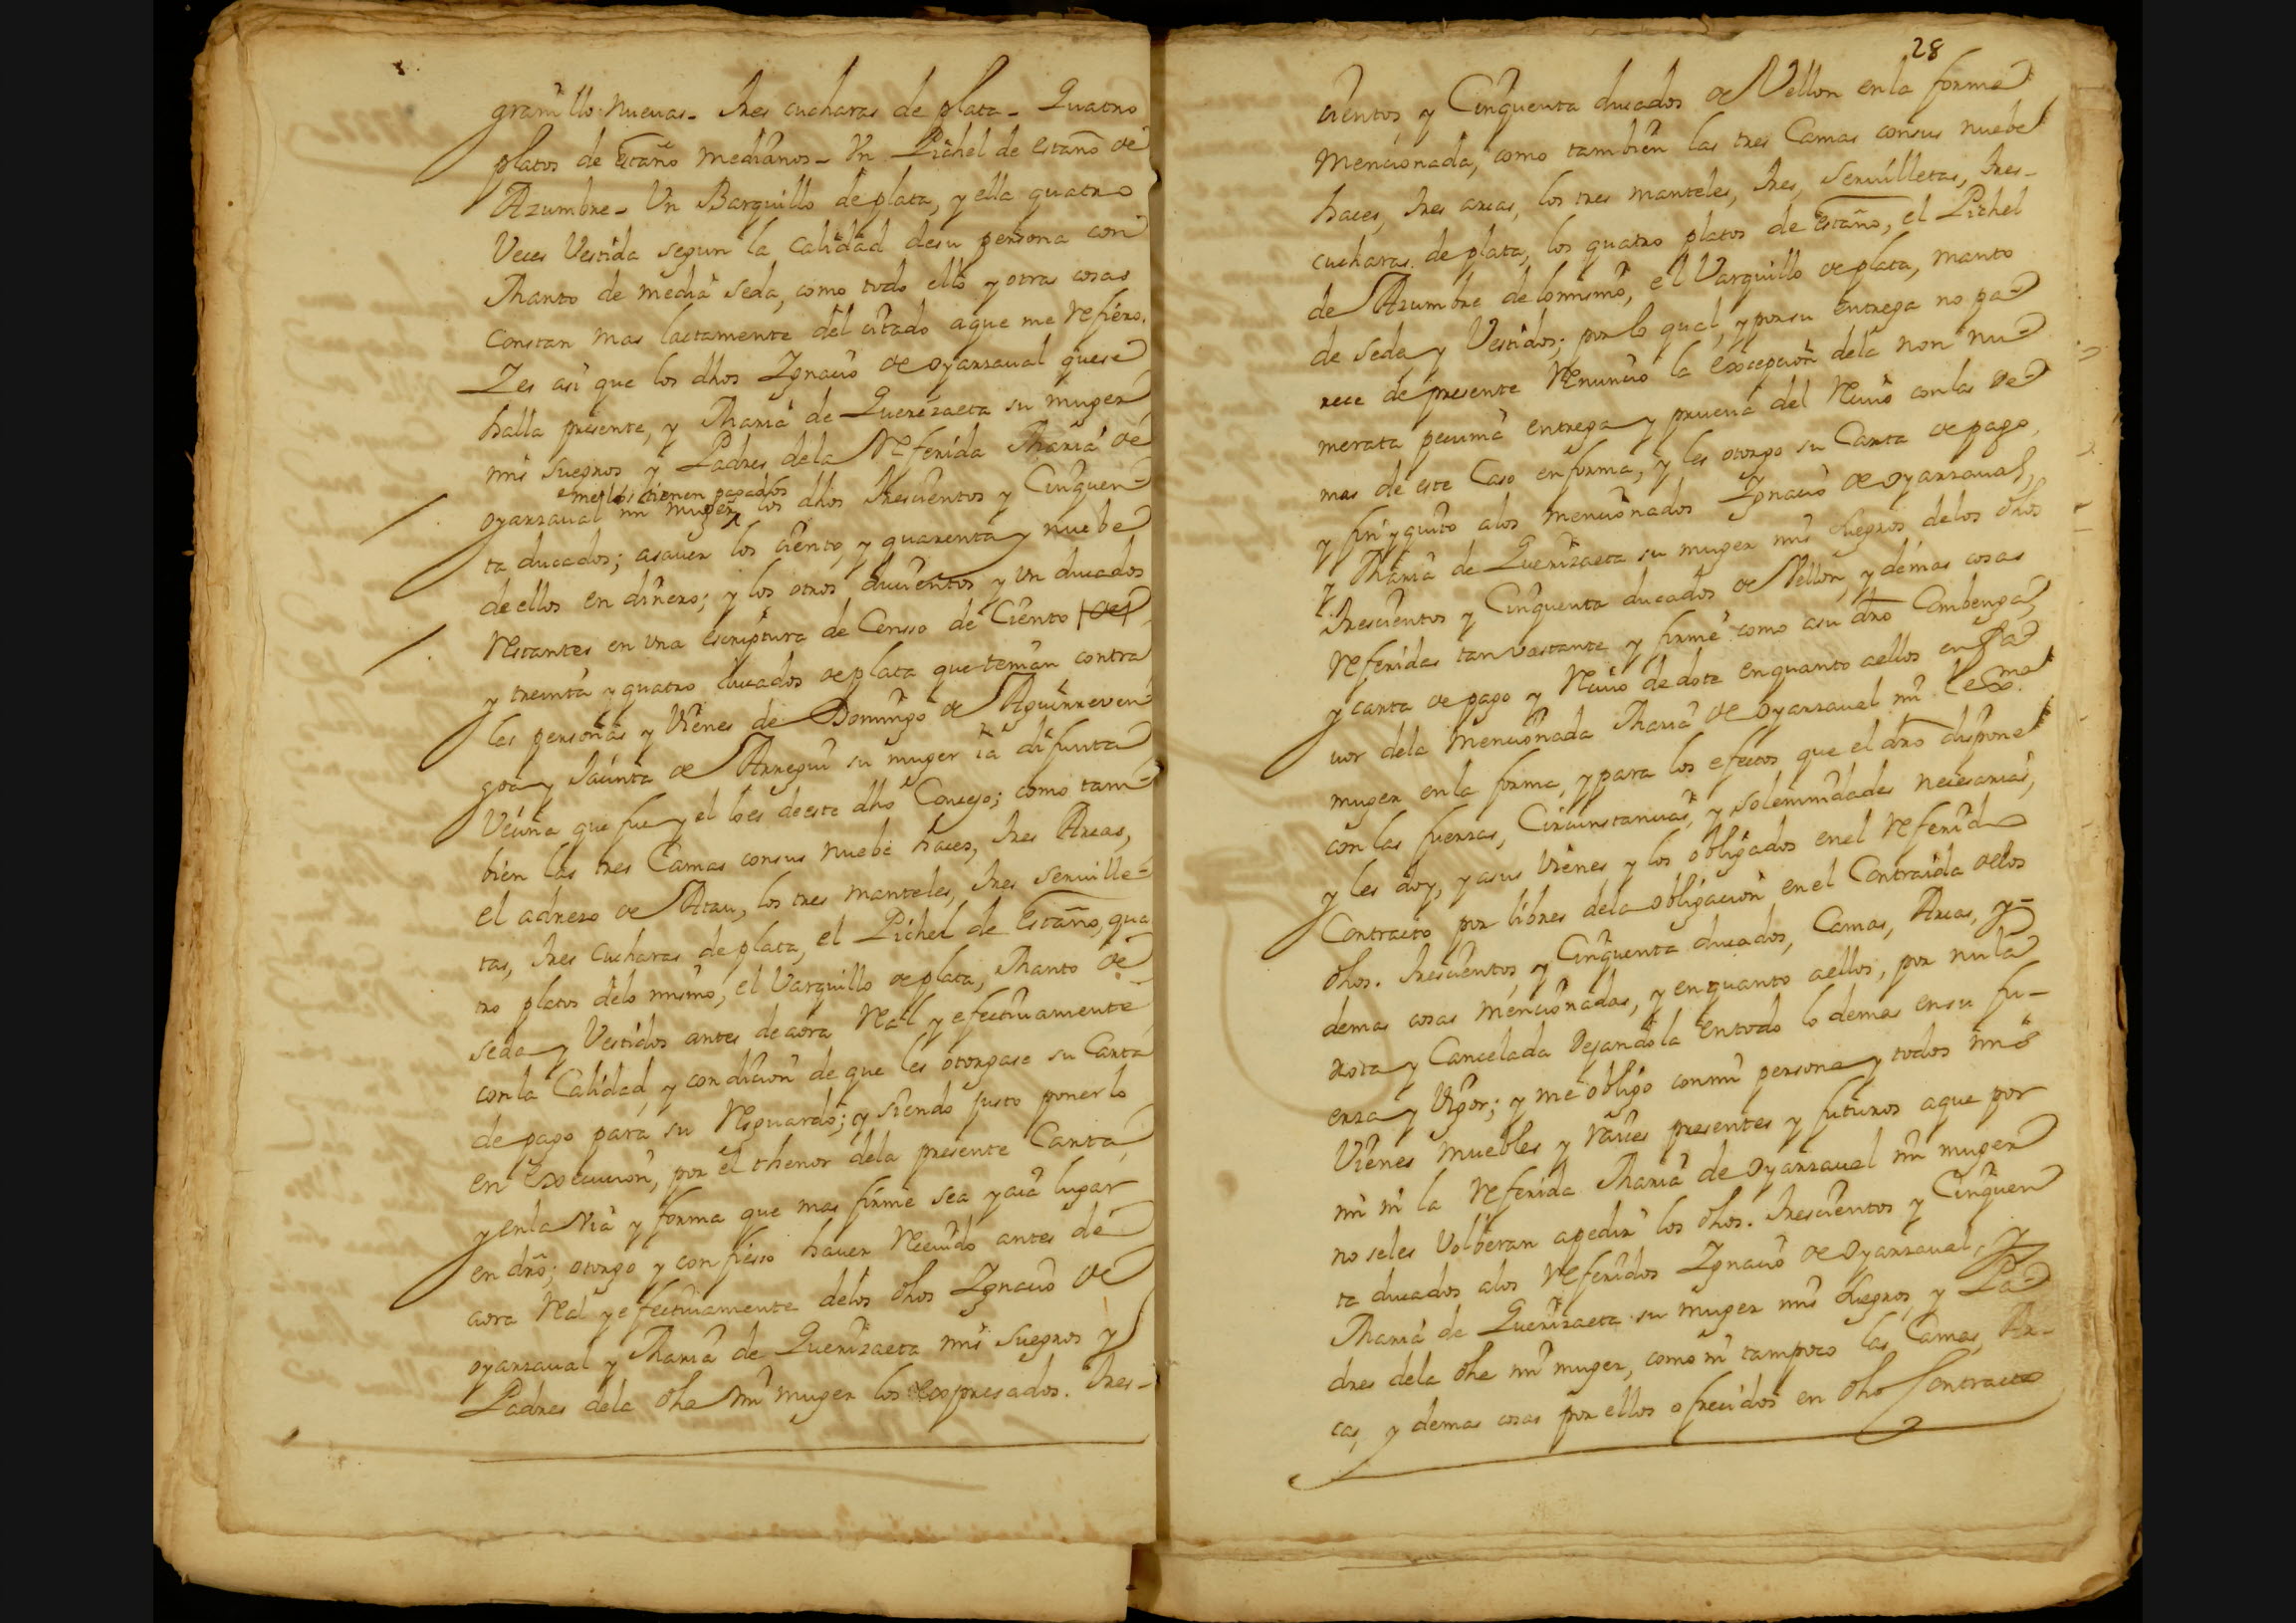 granillo nuevas. Tres cucharas de plata. Quatro
platos de estaño medianos. Un Pichel de estaño de
Azumbre. Un Barquillo de plata, y ella quatro
Veces Vestida segun la calidad desu persona con
Manto de media seda, como todo ello y otras cosas
Constan mas lactamente del citado aque me refiero.
Y es asi que los dhos Ygnacio de oyarzaual quese
halla presente, y Maria de Querizaeta su muger
mis suegros y Padres dela referida Maria de
me los tienen pagados
oyarzaual mi muger los dhos Trescientos y Cinquen-
ta ducados; asauer los ciento, y quarenta y nuebe
de ellos en dinero; y los otros ducientos y un ducados
restantes, en una escriptura de Censso de Ciento de
y treinta y quatro ducados de plata que tenian contra
las personas y Vienes de Domingo de Aguirreven-
goa y Jacinta de Arregui su muger ia difunta
Vecina que fue y el lo es de este dho Concejo; como tam-
bien las tres Camas consus nuebe haces, tres Arcas,
el adrezo de Atau, los tres manteles, tres seruille-
tas, tres Cucharas de plata, el Pichel de Estaño, qua
tro platos delo mismo, el Varquillo de plata, Manto de
seda y Vestidos antes de aora real y efectiuamente
con la Calidad, y condicion de que les otorgase su Carta
de pago para su resguardo; y siendo justo ponerlo
en Execucion, por el thenor dela presente Carta,
y enla via y forma que mas firme sea y aia lugar
en dro; otorgo y confiesso hauer reciuido antes de
aora real y efectiuamente delos dhos Ygnacio de
oyarzaual y Maria de Querizaeta mis suegros y
Padres dela dha mi muger los expresados. Tres-
28
cientos, y Cinquenta ducados de Vellon enla forma
Mencionada, como tambien las tres Camas consus nuebe
haces, tres arcas, los tres manteles, tres, seruilletas, tres-
cucharas de plata, los quatro platos de Estaño, el Pichel
de Azumbre delomismo, el Varquillo de plata, manto
de seda y Vestidos; por lo qual, y porsu entrega no pa-
rece de presente renuncio la excepcion dela non nu-
merata pecunia entrega y prueua del reciuo con las de
mas de este Caso en forma, y les otorgo su Carta de pago,
y finiquito alos mencionados Ygnacio de oyarzaual,
y Maria de Querizaeta su muger mis suegros, delos dhos
Trescientos y Cinquenta ducados de Vellon, y demas cosas
referidas tan vastante y firme como asu dro Combenga,
y carta de pago y reciuo de dote en quanto aellos en fa-
uor dela mencionada Maria de oyarzaual mi lexma
muger enla forma, y para los efectos que el dro dispone
con las fuerzas, Circunstancias, y solemnidades necesarias,
y les doy, y asus Vienes y los obligados en el referido
Contracto por libres dela obligacion en el Contraida delos
dhos. Trescientos, y Cinquenta ducados, Camas, Arcas, y-
demas cosas mencionadas, y en quanto aellos, por nula
rota y Cancelada Dejandola entodo lo demas ensu fu-
erza y Vigor; y me obligo conmi persona y todos mis
Vienes muebles y raices presentes y futuros aque por
mi ni la referida Maria de oyarzaual mi muger
no seles Volberan apedir los dhos. Trescientos y Cinquen
ta ducados alos referidos Ygnacio de oyarzaual, y
Maria de Querizaeta su muger mis suegros, y Pa-
dres dela dha mi muger, como ni tampoco las Camas, Ar-
cas, y demas cosas por ellos ofrecidos en dho Contracto